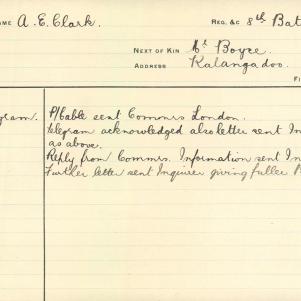 AME A. E. Clark. REG. &c 8th Bat
NEXT OF KIN Mr Boyce.
ADDRESS Kalangadoo.
FI
gram. P/Cable sent Commrs London.
Telegram acknowledged also letter sent In
as above.
Reply from Commrs. Information sent In
Further letter sent Inquirer giving fuller